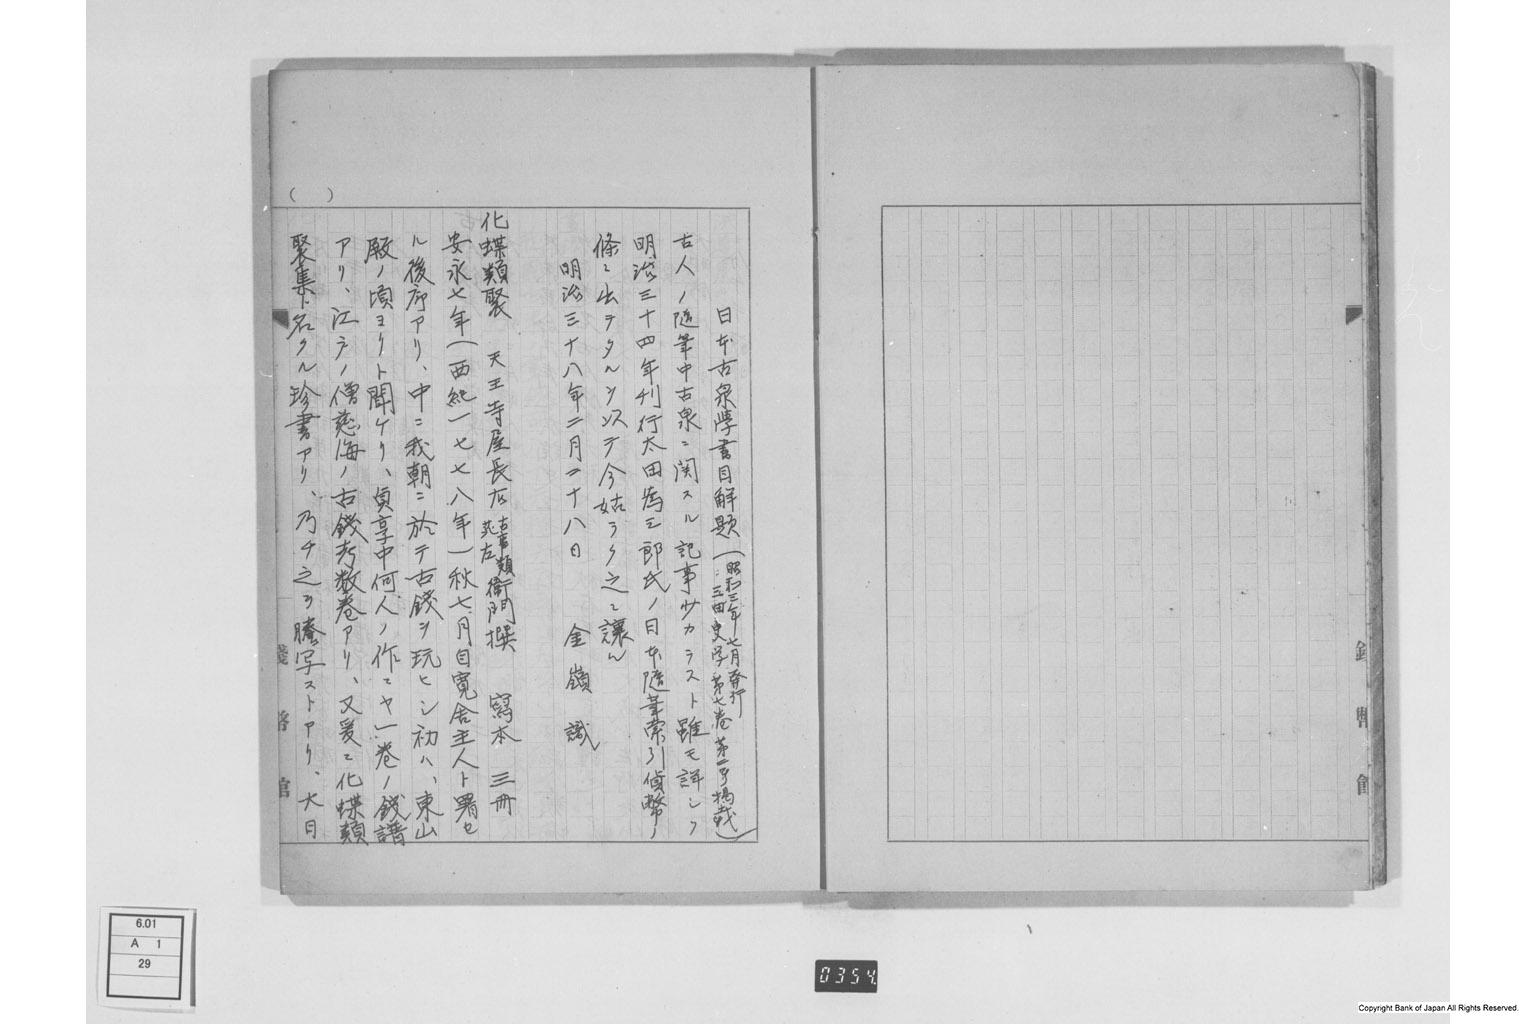 日本古泉学書目解題(昭和三年七月発行
三田史学第七巻第二号掲載)
古人ノ随筆中古泉ニ関スル記事少カラスト雖モ詳シク
明治三十四年刊行太田為三郎氏ノ日本随筆索引貨幣ノ
條ニ出テタルヲ以テ今姑ラク之ニ譲ル
明治三十八年二月二十八日 金嶺識
化蝶類聚 天王寺屋長右衛門撰 寫本 三冊
古事類
苑左
安永七年(西紀一七七八年)秋七月自寛舎主人ト署セ
ル後序アリ、中ニ我朝ニ於テ古錢ヲ玩ヒシ初ハ、東山
殿ノ頃ヨリト聞ケリ、貞享中何人ノ作ニヤ一巻ノ錢譜
アリ、江戸ノ僧慈海ノ古錢考数巻アリ、又爰ニ化蝶類
聚集ト名クル珍書アリ、乃チ之ヲ謄写ストアリ、大日
錢幣館
6.01
A 1
29
0354
Copyright Bank of Japan All Rights Reserved.